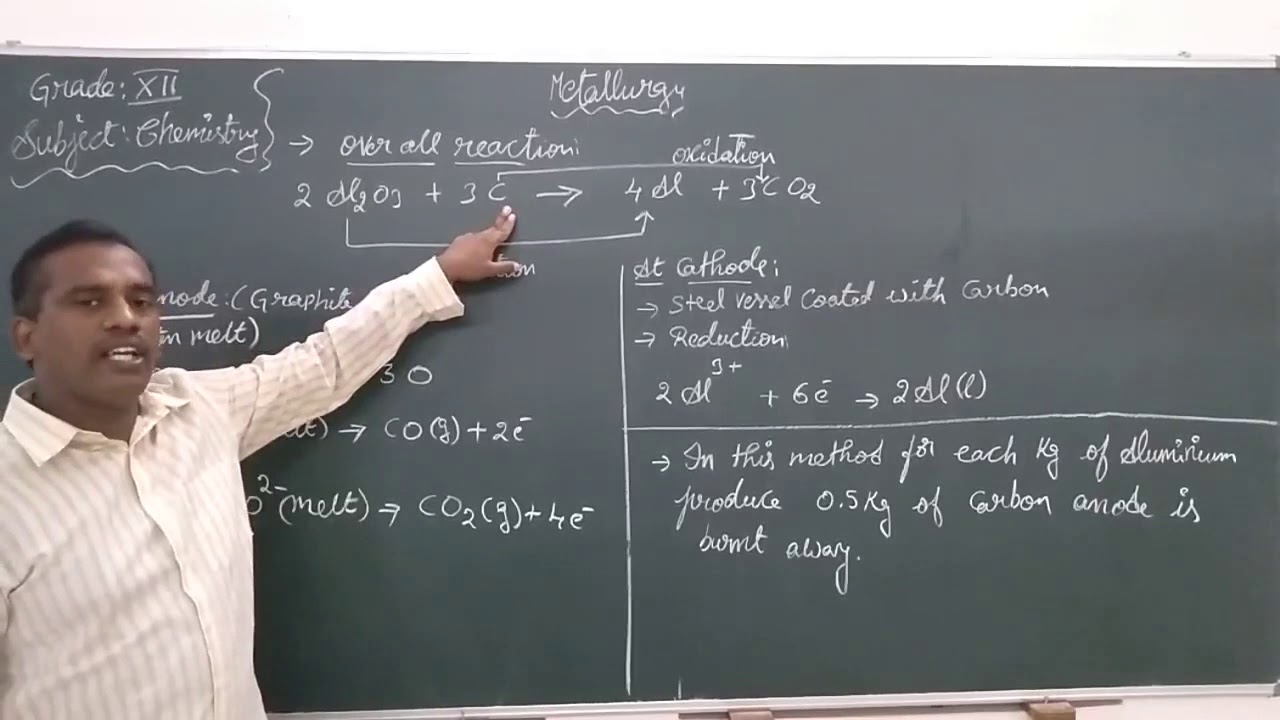 Grade: XII
Subject: Chemistry
Metallurgy
→ overall reaction:
oxidation
2 Al2O3 + 3 C → 4 Al + 3 CO2
node: (Graphite
in melt)
3 O
→ CO(g) + 2e⁻
O²⁻ (melt) → CO2(g) + 4e⁻
At Cathode:
→ Steel vessel Coated with Carbon
→ Reduction:
2 Al³⁺ + 6e⁻ → 2Al(l)
→ In this method for each Kg of Aluminium
produce 0.5Kg of Carbon anode is
burnt away.